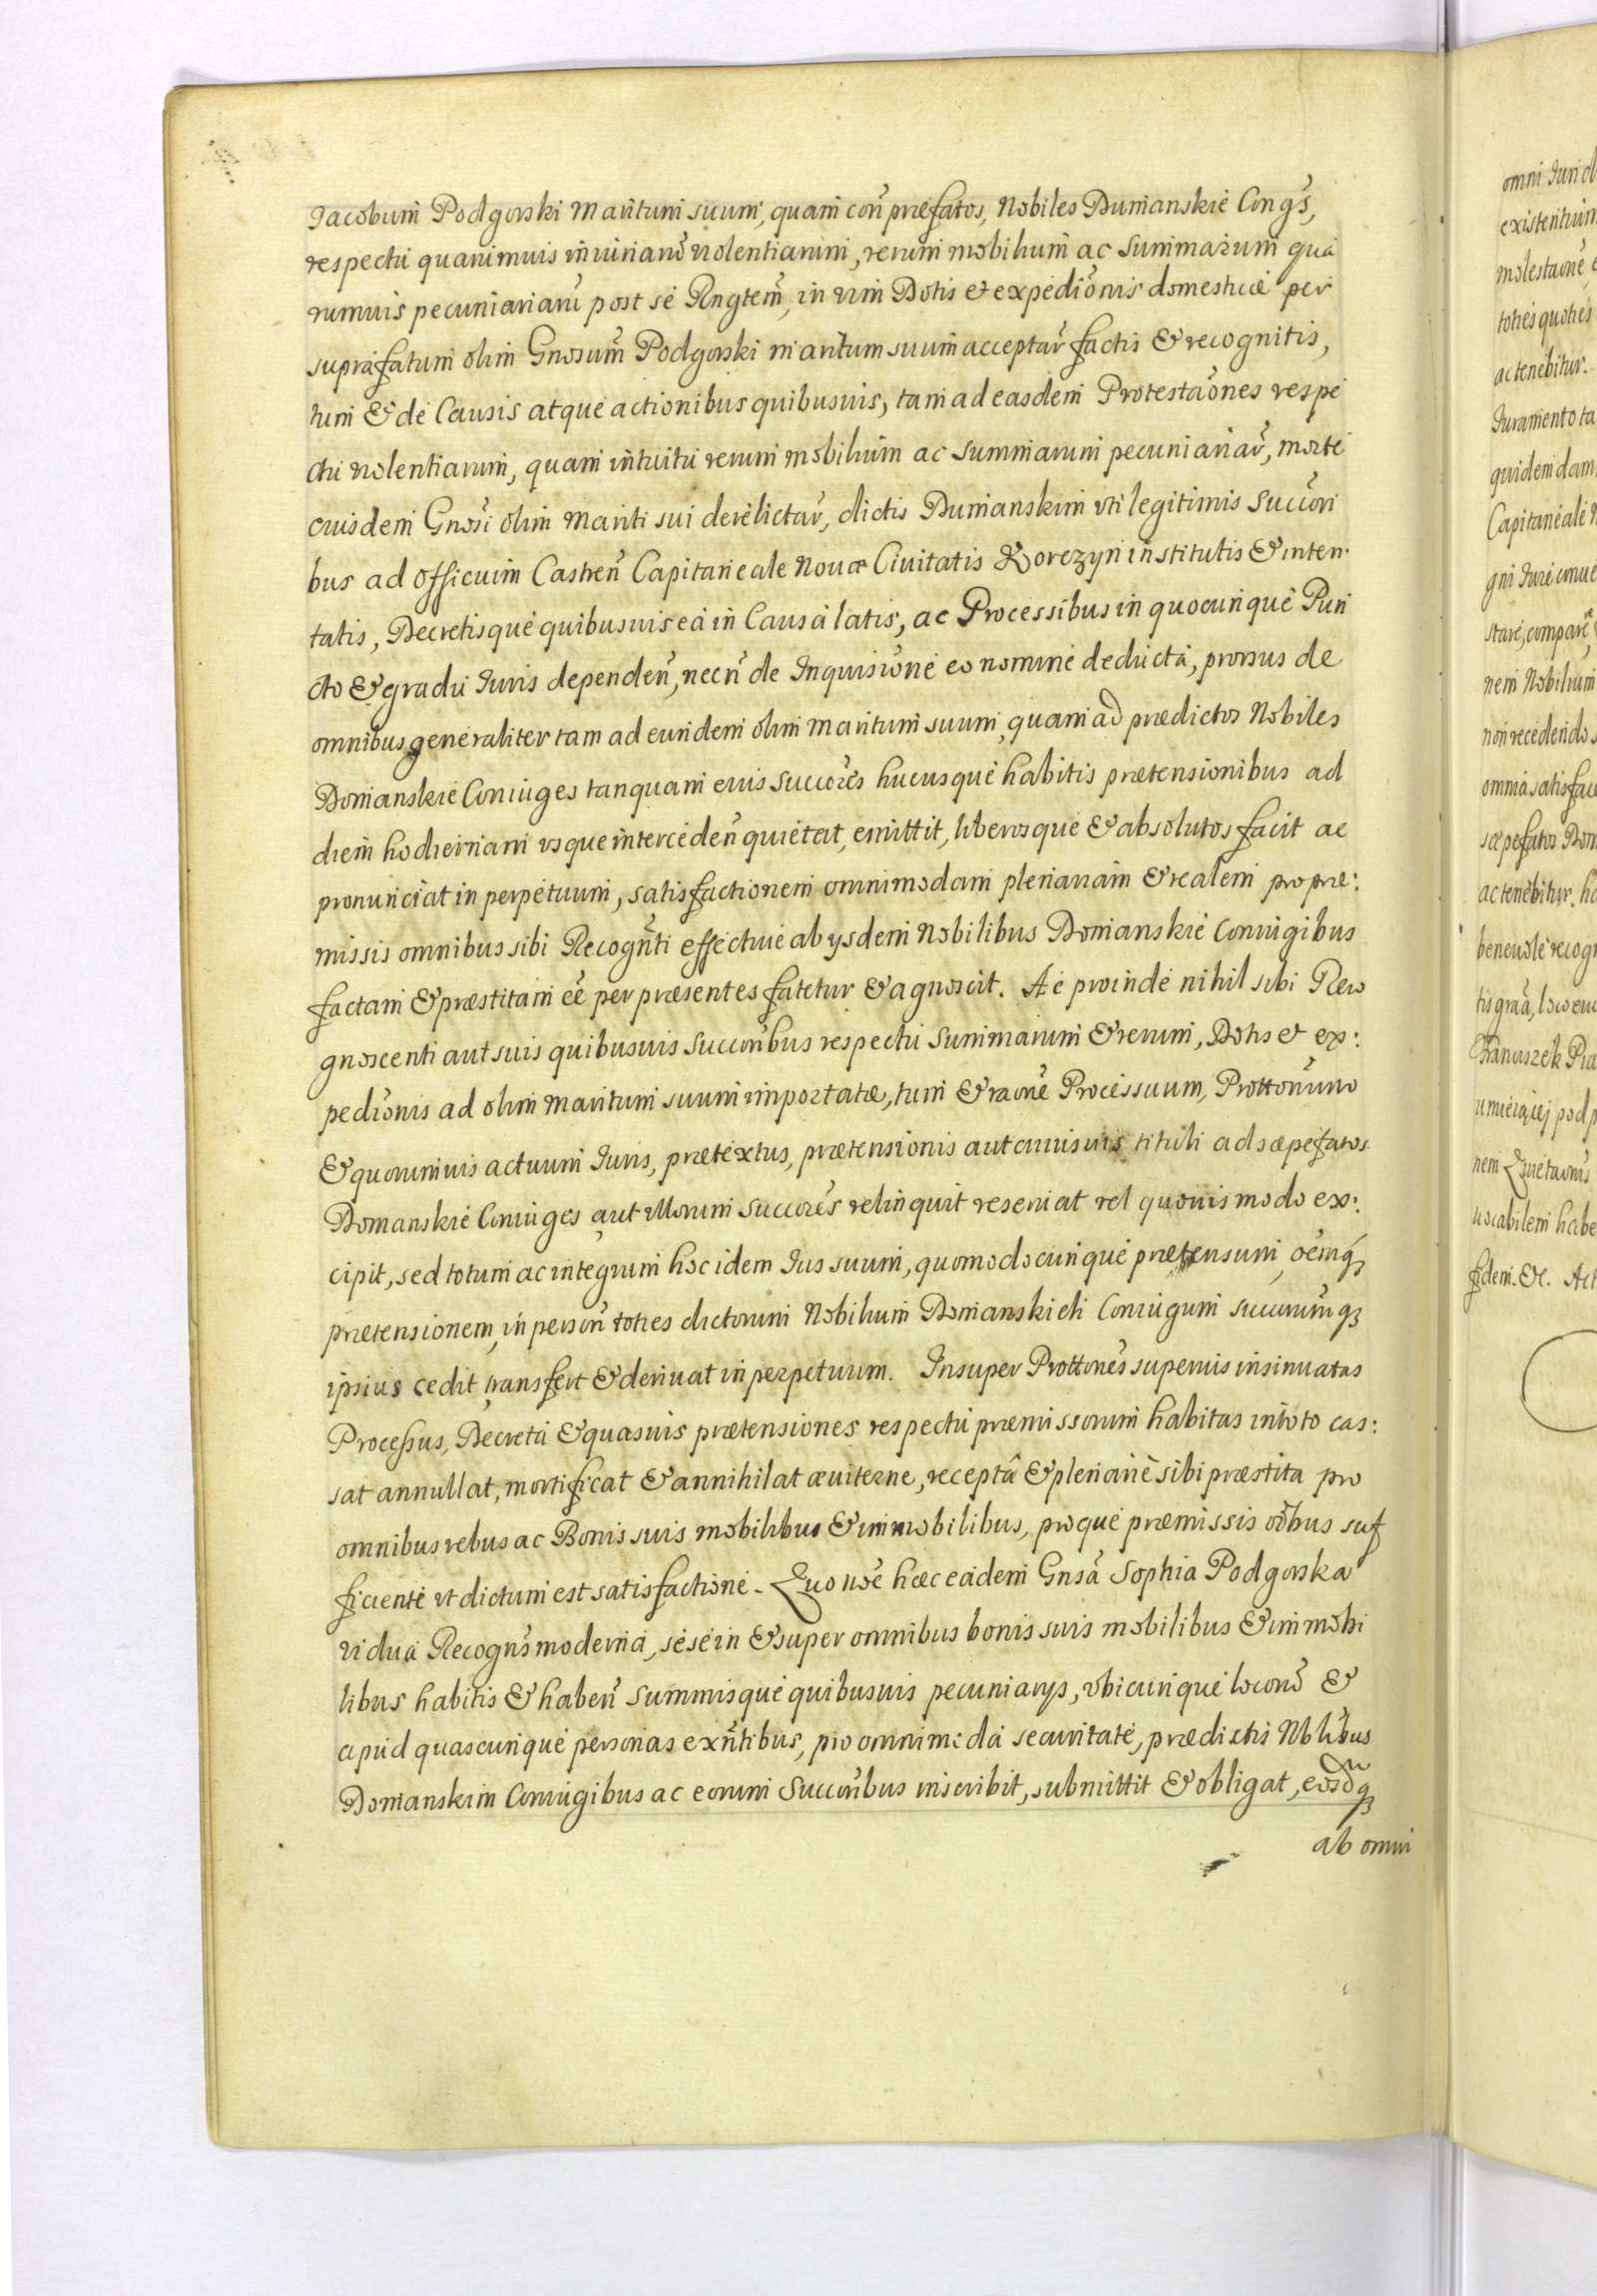 Jacobum Podgorski Maritum suum, quam coñ præfatos, Nobiles Dumanskie Congs,
respectu quarumuis iniuriarũ violentiarum, rerum mobilium ac Summarum qua
rumuis pecuniariarũ post se Rngtem, in vim Dotis et expedionis domesticæ per
suprafatum olim Gnosum Podgorski maritum suum acceptar̃ factis & recognitis,
tum & de Causis atque actionibus quibusuis, tam ad easdem Protestaones respe
ctu violentiarum, quam intuitu rerum mobilium ac summarum pecuniariar̃, morte
eiusdem Gnosi olim Mariti sui derelictar̃, dictis Dumanskim vti legitimis Succori
bus ad Officium Castreñ Capitaneale Nouæ Ciuitatis Korczyn institutis & inten
tatis, Decretisque quibusuis ea in Causa latis, ac Processibus in quocunque Pun
cto & gradu Iuris dependeñ, necñ de Inquisione eo nomine deducta, prorsus de
omnibus generaliter tam ad eundem olim maritum suum, quam ad prædictos Nobiles
Domanskie Coniuges tanquam eius succores hucusque habitis prætensionibus ad
diem hodiernam vsque intercedeñ quietat, emittit, liberosque & absolutos facit ac
pronunciat in perpetuum, satisfactionem omnimodam plenariam & realem pro præ:
missis omnibus sibi Recognti effectiue ab ysdem Nobilibus Domanskie Coniugibus
factam & præstitam eẽ per præsentes fatetur & agnoscit. Ac proinde nihil sibi Reco
gnoscenti aut suis quibusuis succoribus respectu Summarum & rerum, Dotis et ex:
pedionis ad olim maritum suum importatæ, tum & raone Processuum, Prottonum
& quorumuis actuum Iuris, prætextus, prætensionis aut cuiusuis tituli ad sæpefatos
Domanskie Coniuges aut illorum Succores relinquit reseruat vel quouis modo ex:
cipit, sed totum ac integrum hoc idem Ius suum, quomodocunque prætensum, oẽmq
prætensionem, in personˉ toties dictorum Nobilium Domanskich Coniugum succorumq
ipsius cedit, transfert & deriuat in perpetuum. Insuper Prottones superuis insinuatas
Processus, Decreta & quasuis prætensiones respectu præmissorum habitas in toto cas:
sat annullat, mortificat & annihilat æuiterne, receptâ & plenarie sibi præstita pro
omnibus rebus ac Bonis suis mobilibus & immobilibus, proque præmissis oĩbus suf
ficiente vt dictum est satisfactione. Quo noẽ hæc eadem Gnsa Sophia Podgorska
vidua Recogns moderna, sese in & super omnibus bonis suis mobilibus & immobi
libus habitis & habeñ Summisque quibusuis pecuniarys, vbicunque locorũ &
apud quascunque personas exñtibus, pro omnimoda securitate, prædictis Nblibus
Domanskim Coniugibus ac eorum Succoribus inscribit, submittit & obligat, eosdq
ab omni
omni
existentium
molestaone
toties quoties
ac tenebitur.
Iuramento ta
quidem dam
Capitaneale N
gni Iure
stare, compare
nem Nobilium
non recedendo s
omnia satisfac
sæpefatos Dom
ac tenebitur. ha
beneuole recogn
tis graa, loco
Hanuszek Pra
umieiącej podp
nem Quietaonis
uocabilem habe
fidem. &c. Act